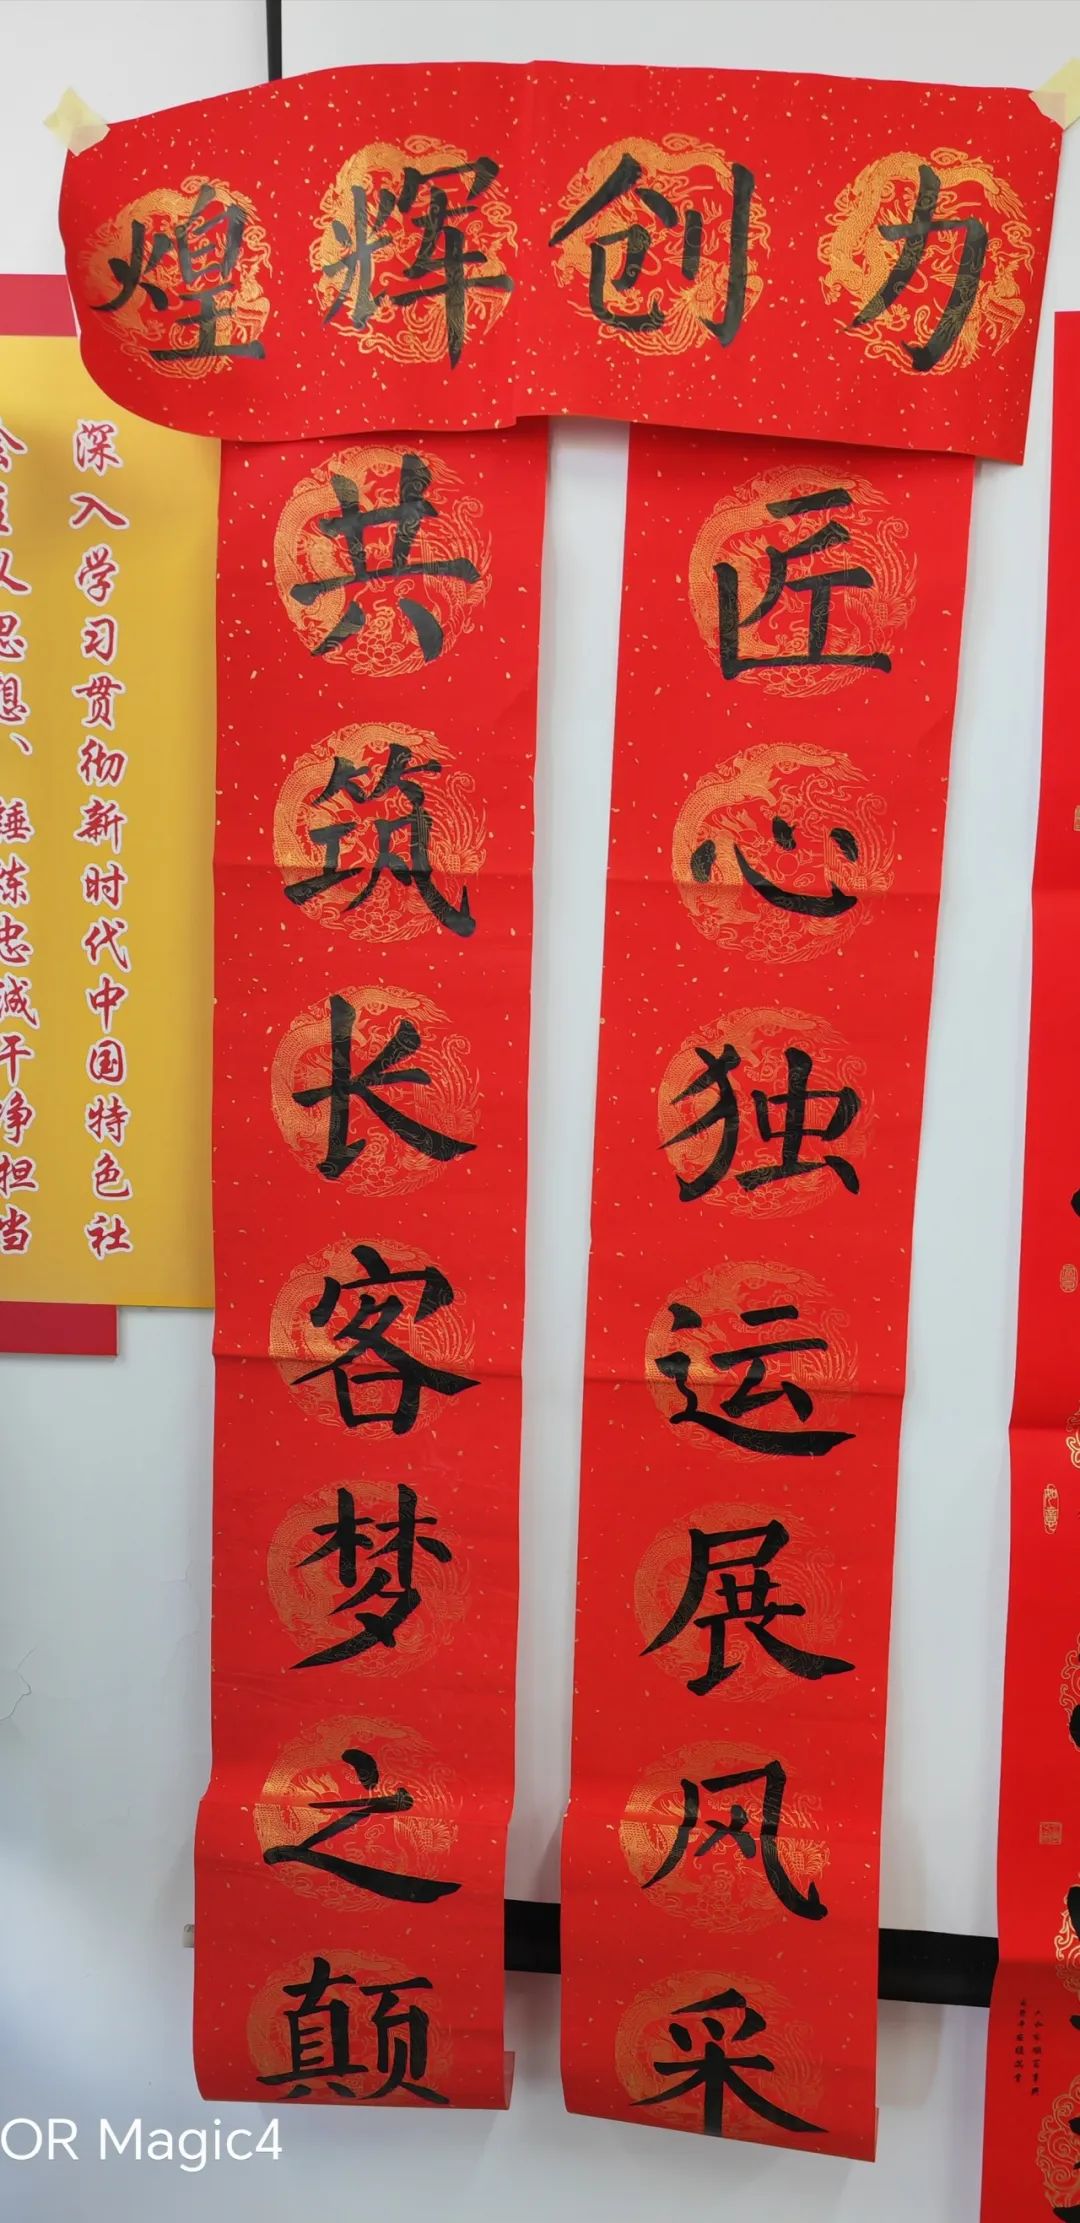 力创辉煌
匠心独运展风采
共筑长客梦之颠
深入学习贯彻新时代中国特色社
会主义思想、锤炼忠诚干净担当
OR Magic4